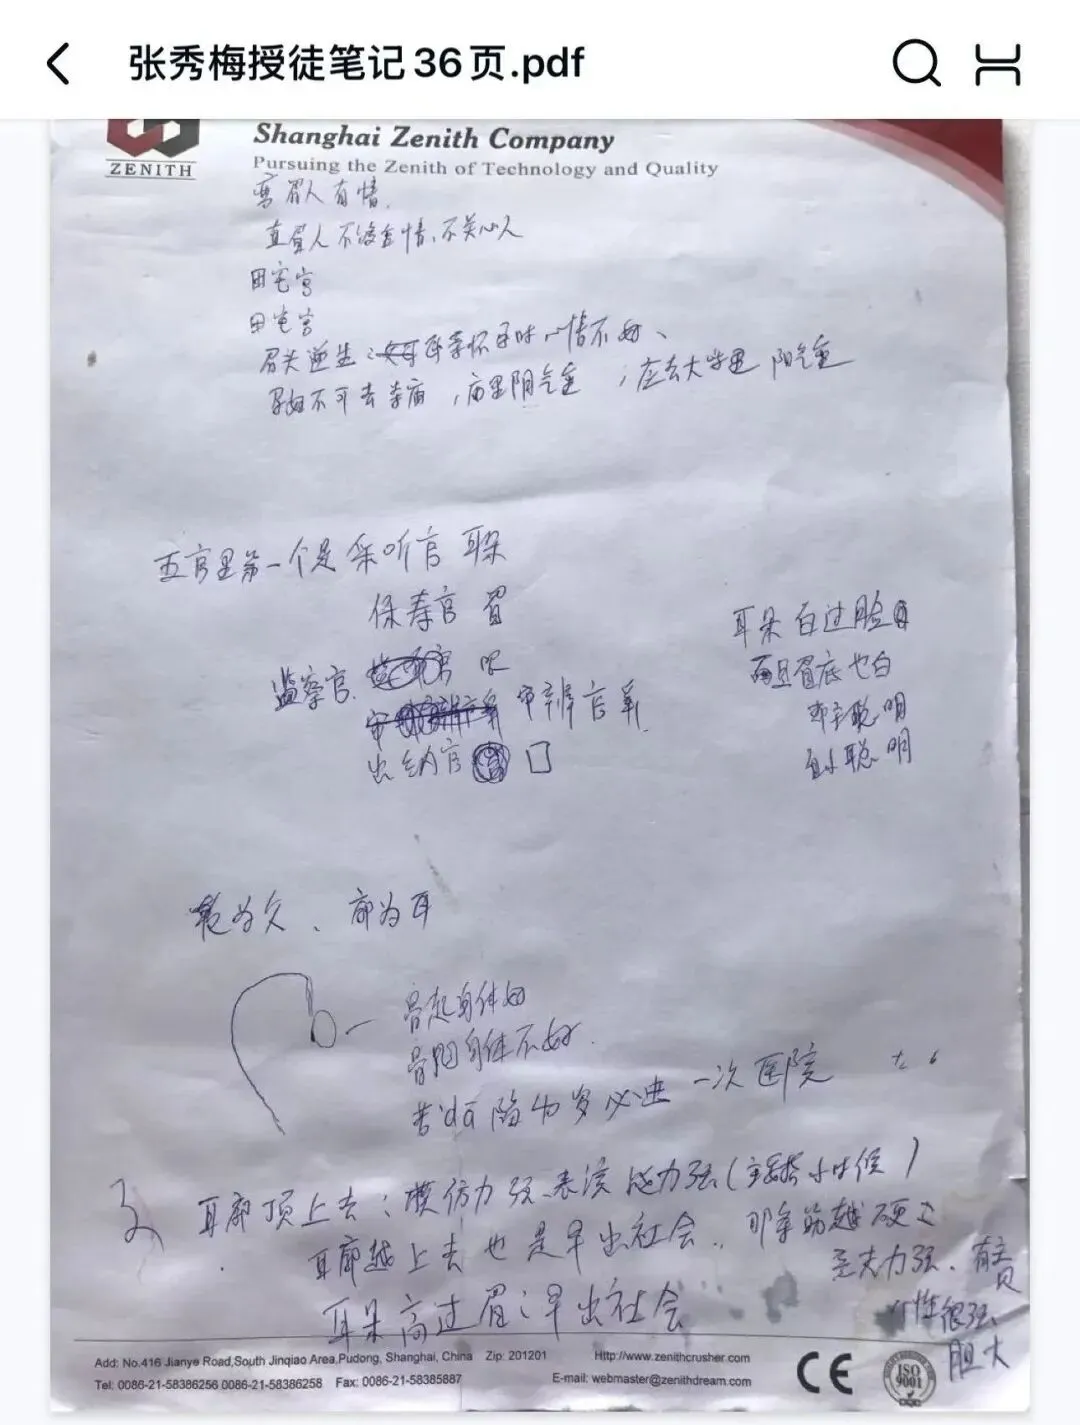 张秀梅授徒笔记36页.pdf
ZENITH
Shanghai Zenith Company
Pursuing the Zenith of Technology and Quality
弯眉人有情.
直眉人不没有情、不关心人
田宅宫
田宅宫
眉头逆生:母亲怀孕时心情不好、
孕妇不可去寺庙,庙里阴气重;应去大学里 阳气重
五官里第一个是采听官 耳朵
保寿官 眉
监察官. 眼
审辨官 鼻
出纳官 口
耳朵白过脸
而且眉底也白
聪明
聪明
轮为 、廓为耳
骨起身体好
骨凹身体不好.
若 陷 岁必进一次医院
耳廓顶上去:模仿力强、表演能力强(小时候)
耳廓越上去也是早出社会.. 那条筋越硬
力强、有
耳朵高过眉:早出社会
个性很强、
胆大
Add: No.416 Jianye Road,South Jinqiao Area,Pudong, Shanghai, China Zip: 201201 Http://www.zenithcrusher.com
Tel: 0086-21-58386256 0086-21-58386258 Fax: 0086-21-58385887 E-mail: webmaster@zenithdream.com
CE
ISO
9001